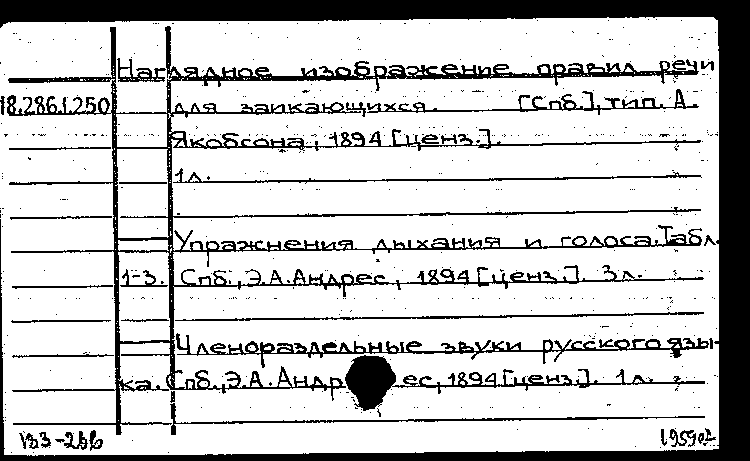 Наглядное изображение правил речи
18.286.1.250 для заикающихся. [Спб.], тип. А.
Якобсона, 1894 [ценз.].
1л.
Упражнения дыхания и голоса. Табл.
1-3. Спб., Э.А.Андрес, 1894 [ценз.]. 3л.
Членораздельные звуки русского язы-
ка. Спб., Э.А.Андрес, 1894 [ценз.]. 1л.